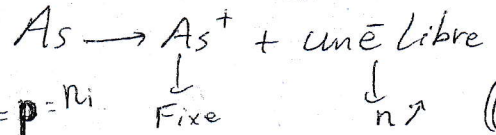 As → As⁺ + un ē libre
↓ ↓
= p = ni Fixe n ↗ (